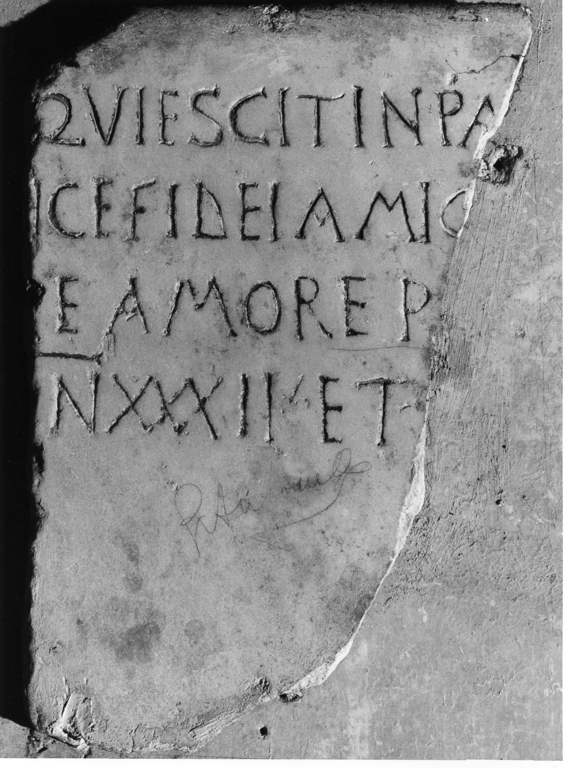 QVIESCITINPA
ICEFIDEIAMIC
EAMOREP
NXXXII ET